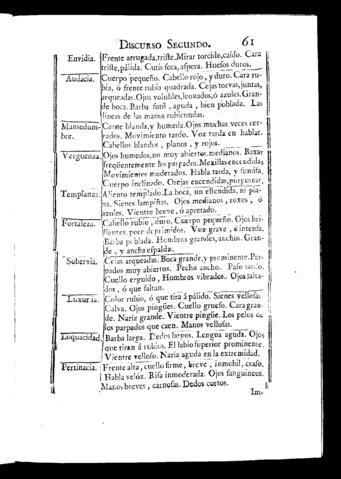 DISCURSO SEGUNDO. 61
Envidia. Frente arrugada, triste. Mirar torcido, caído. Cara
triste, pálida. Cutis seca, aspera. Huesos duros.
Audacia. Cuerpo pequeño. Cabello rojo, y duro. Cara ru-
bia, ó frente rubia quadrada. Cejas torvas, juntas,
arqueadas. Ojos volubles, leonados, ó azules. Gran-
de boca. Barba sutil, aguda, bien poblada. Las
lineas de las manos rubicundas.
Mansedum- Carne blanda, y humeda. Ojos muchas veces cer-
bre. rados. Movimiento tardo. Voz tarda en hablar.
Cabellos blandos, planos, y rojos.
Verguenza. Ojos humedos, no muy abiertos, medianos. Baxar
freqüentemente los parpados. Mexillas encendidas
Movimientos moderados. Habla tarda, y sumisa,
Cuerpo inclinado. Orejas encendidas, purpureas,
Templanza. Aliento templado. La boca, un estendida, ni pla-
na. Sienes lampiñas. Ojos medianos, roxos, ó
azules. Vientre breve, ó apretado.
Fortaleza. Cabello rubio, duro. Cuerpo pequeño. Ojos bri-
llantes, poco deprimidos. Voz grave, é intensa.
Barba poblada. Hombros grandes, anchos. Gran-
de, y ancha espalda.
Sobervia. Cejas arqueadas. Boca grande, y prominente. Par-
pados muy abiertos. Pecho ancho. Paso tardo.
Cuello erguido, Hombros vibrados. Ojos salta-
dos, ó que saltan.
Luxuria. Color rubio, ó que tira á palido. Sienes vellosas.
Calva. Ojos pingües. Cuello grueso. Cara gran-
de. Naríz grande. Vientre pingüe. Los pelos de
los parpados que caen. Manos vellosas.
Loquacidad. Barba larga. Dedos largos. Lengua aguda. Ojos
que tiran á rubios. El labio superior prominente.
Vientre velloso. Naríz aguda en la extremidad.
Pertinacia. Frente alta, cuello firme, breve, inmobil, craso,
Habla velóz. Risa inmoderada. Ojos sanguineos.
Manos breves, carnosas. Dedos cortos.
Im-